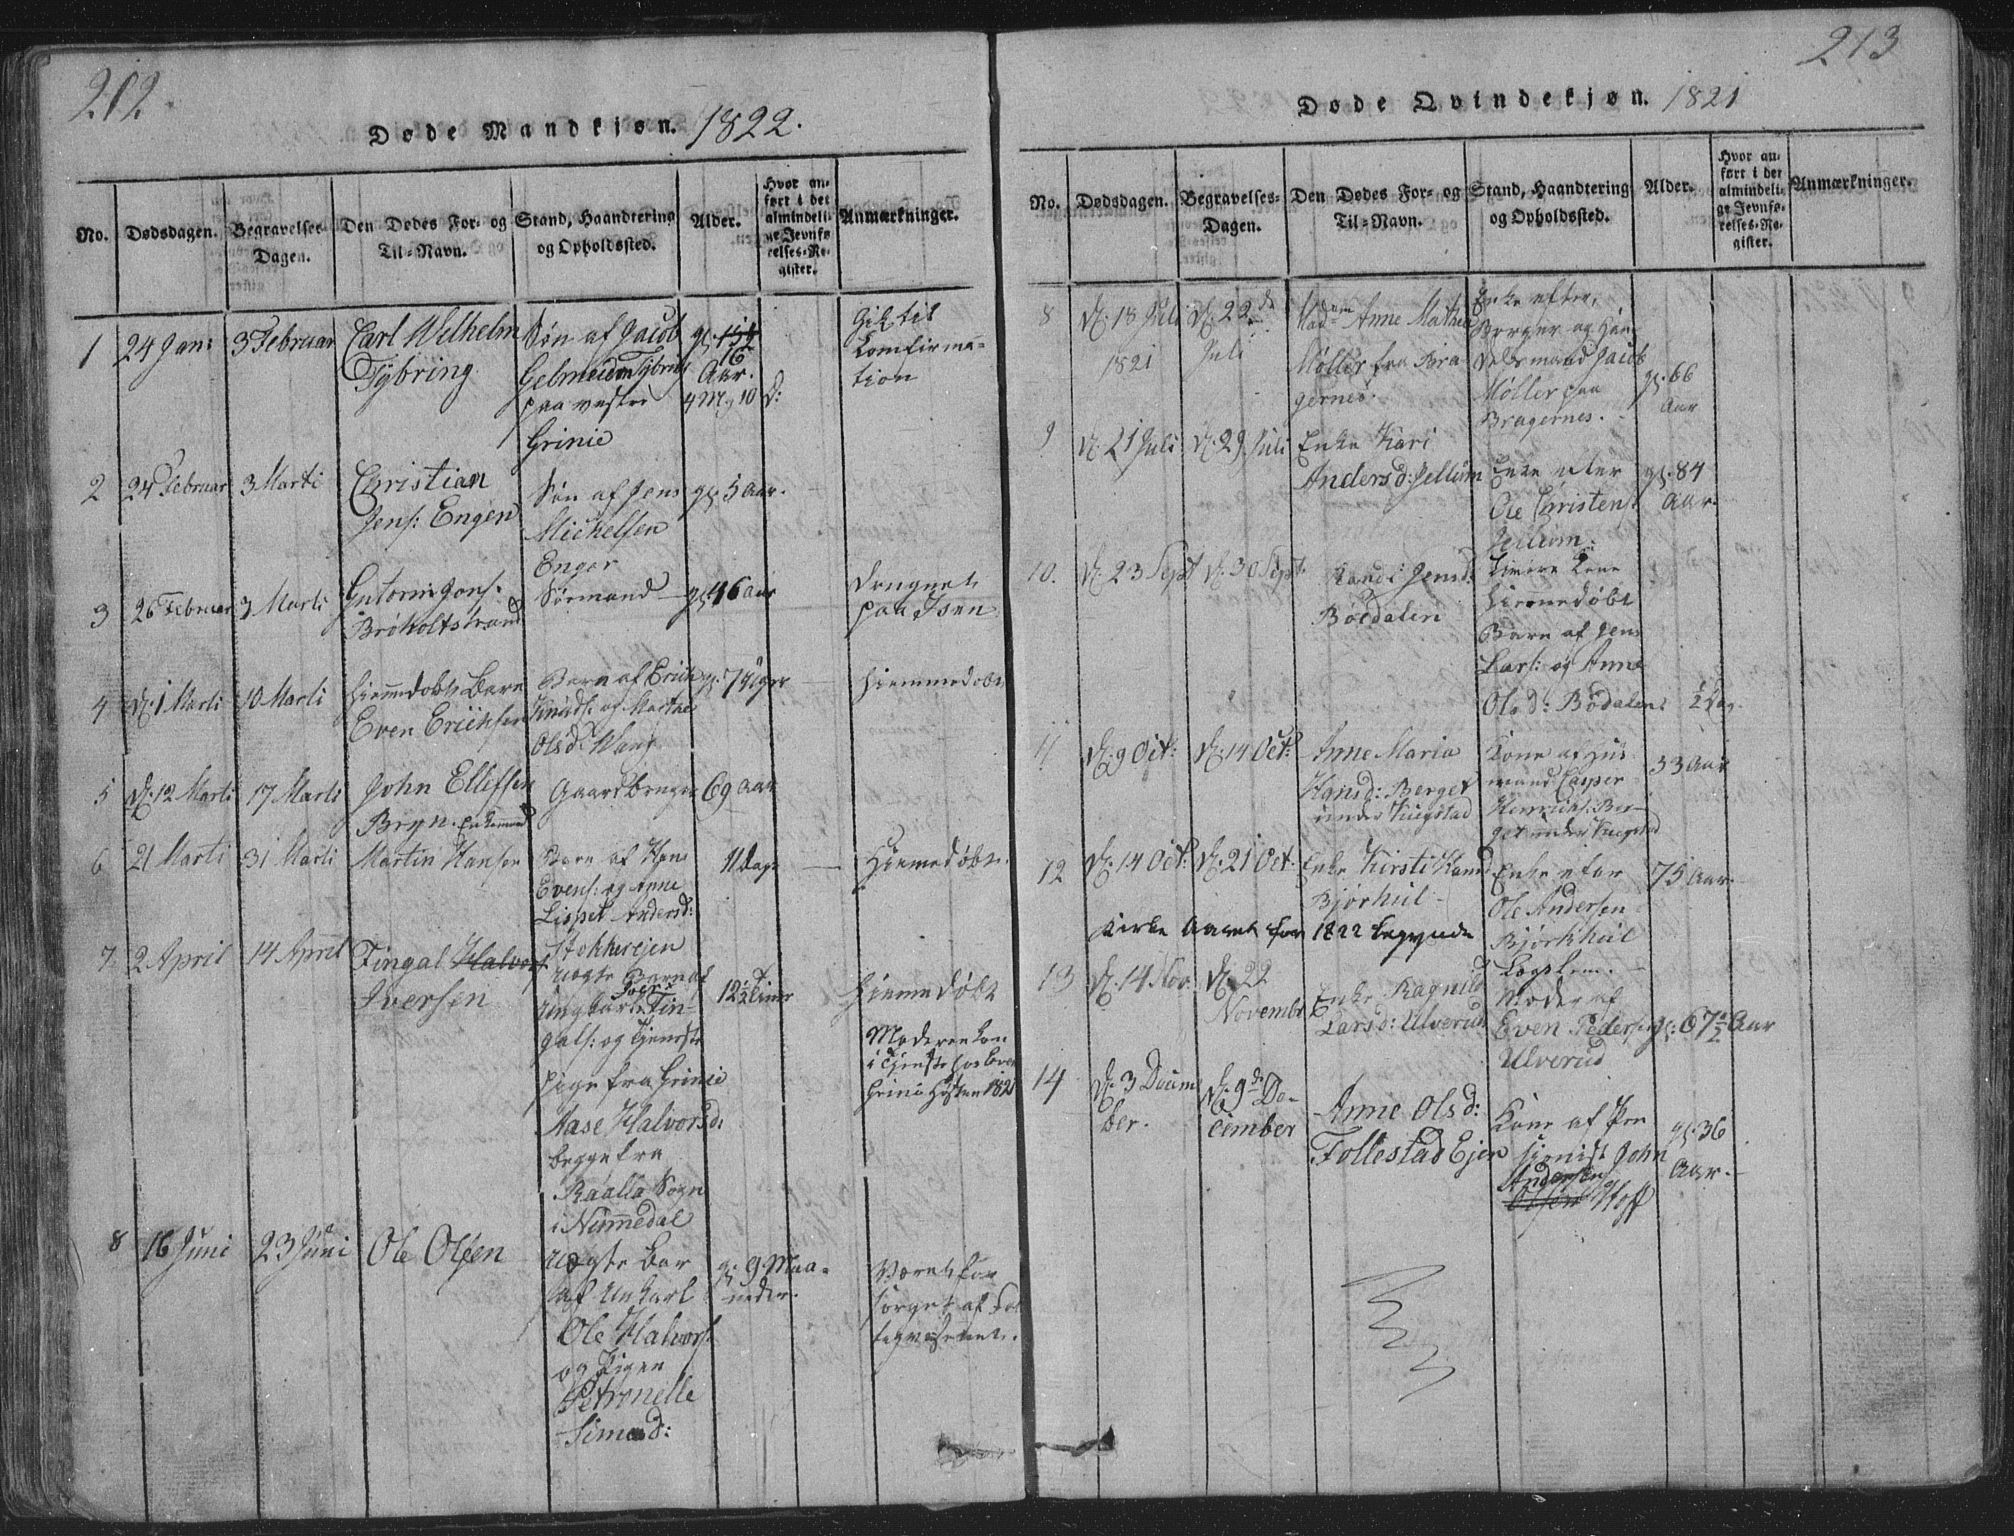 212.
Døde Mandkjøn. 1822.
No.
Dødsdagen.
Begravelses-
Dagen.
Den Dødes For- og
Til-Navn.
Stand, Haandtering
og Opholdssted.
Alder.
Hvor an-
ført i det
almindeli-
ge Jevnfø-
relses-Re-
gister.
Anmærkninger.
1
24 Jan:
3 Februar
Carl Wilhelm
Tybring
Søn af Jacob
Tybring
paa vestre
Grinie
gl. 15½
16
Aar.
4 M, 10 D:
Gik til
Comfirma-
tion
2
24 Februar
3 Marti
Christian
Jens: Engen
Søn af Jens
Michelsen
Enger
gl. 5 Aar.
3
26 Februar
3 Marti
Gutorm Jons:
Brøholtstrand
Sørmand
gl. 46 Aar
Druknet
paa Isen
4
D. 1 Marti
10 Marti
Hiemmedøbt Barn
Even Erichsen
Barn af Erich
Knuds: og Marthe
Olsd: Wang
gl. 7 Uger
Hiemmedøbt
5
D. 12 Marti
17 Marti
John Ellefsen
Bryn. Enkemand
Gaardbruger
69 Aar
6
21 Marti
31 Marti
Martin Hansen
Barn af Hans
Evens: og Anne
Lisbet Andersd:
Stokkerejen
11 Dage
Hiemedøbt.
7
2 April
14 April
Fingal Halvors
Iversen
uægte Barn af
Ungkarl Iver Fin-
gals: og Tjeneste
pige fra Grinie
Aase Halvorsd:
begge fra
Raalla Sogn
i Nummedal
12½ Timer
Hiemedøbt
Moderen kom
i Tjeneste hos Even
Grini Høsten 1821
8
16 Juni
23 Juni
Ole Olsen
Uægte Bar
af Unkarl
Ole Halvors:
og Pigen
Petronelle
Simensd:
gl. 9 Maa-
neder.
Været for
sørget af Fat
tigvæsenet.
213
Døde Qvindekjøn. 1821
No.
Dødsdagen.
Begravelses-
Dagen.
Den Dødes For- og
Til-Navn.
Stand, Haandtering
og Opholdssted.
Alder.
Hvor an-
ført i det
almindeli-
ge Jevnfø-
relses-Re-
gister.
Anmærkninger.
8
D. 18 Juli
1821
D. 22de
Juli
Madam Anne Mathea
Møller fra Bra
gernes.
Enke efter
Borger og Han-
delsmand Jacob
Møller paa
Bragernes.
gl. 66
Aar
9
D. 21 Juli
D. 29 Juli
Enke Kari
Andersd: Jellum
Enke efter
Ole Christens:
Jellum.
gl. 84
Aar.
10.
D. 23 Sept
D. 30 Sept.
Randi Jensd:
Bøedalen
Hiemmedøbt
Barn af Jens
Lars: og Anne
Olsd: Bødalen
½ Dag
11
D. 9 Oct:
D. 14 Oct:
Anne Maria
Hansd: Berget
under Ringstad
Kone af Hus
mand Casper
Henrichs: Ber-
get under Ringstad
33 Aar
12
D. 14 Oct:
D. 21 Oct:
Enke Kirsti Hansd
Bjørkul
Enke efter
Ole Andersen
Bjørkhul
Lægslem.
75 Aar.
Kirke Aaret for 1822 begynde
13
D. 14 Nov.
D. 22
November
Enke Ragnild
Larsd: Ulverud
Moder af
Even Pedersen
Ulverud
gl. 67½ Aar
14
D. 3 Decem
ber.
D. 9de De-
cember
Anne Olsd:
Follestad Ejer
Kone af Pen
sionist John
Andersen
Olsen Hoff
gl. 36
Aar.